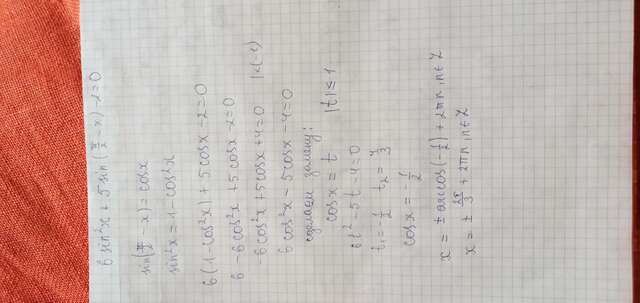 6 sin²x + 5 sin(π/2 - x) - 2 = 0
sin(π/2 - x) = cosx
sin²x = 1 - cos²x
6(1 - cos²x) + 5 cosx - 2 = 0
6 - 6cos²x + 5 cosx - 2 = 0
-6 cos²x + 5cosx + 4 = 0 |·(-1)
6 cos²x - 5cosx - 4 = 0
сделаем замену:
cosx = t |t| ≤ 1
6t² - 5t - 4 = 0
t₁ = -1/2 t₂ = 4/3
cosx = -1/2
x = ± arccos(-1/2) + 2πn, n∈Z
x = ± 2π/3 + 2πn, n∈Z